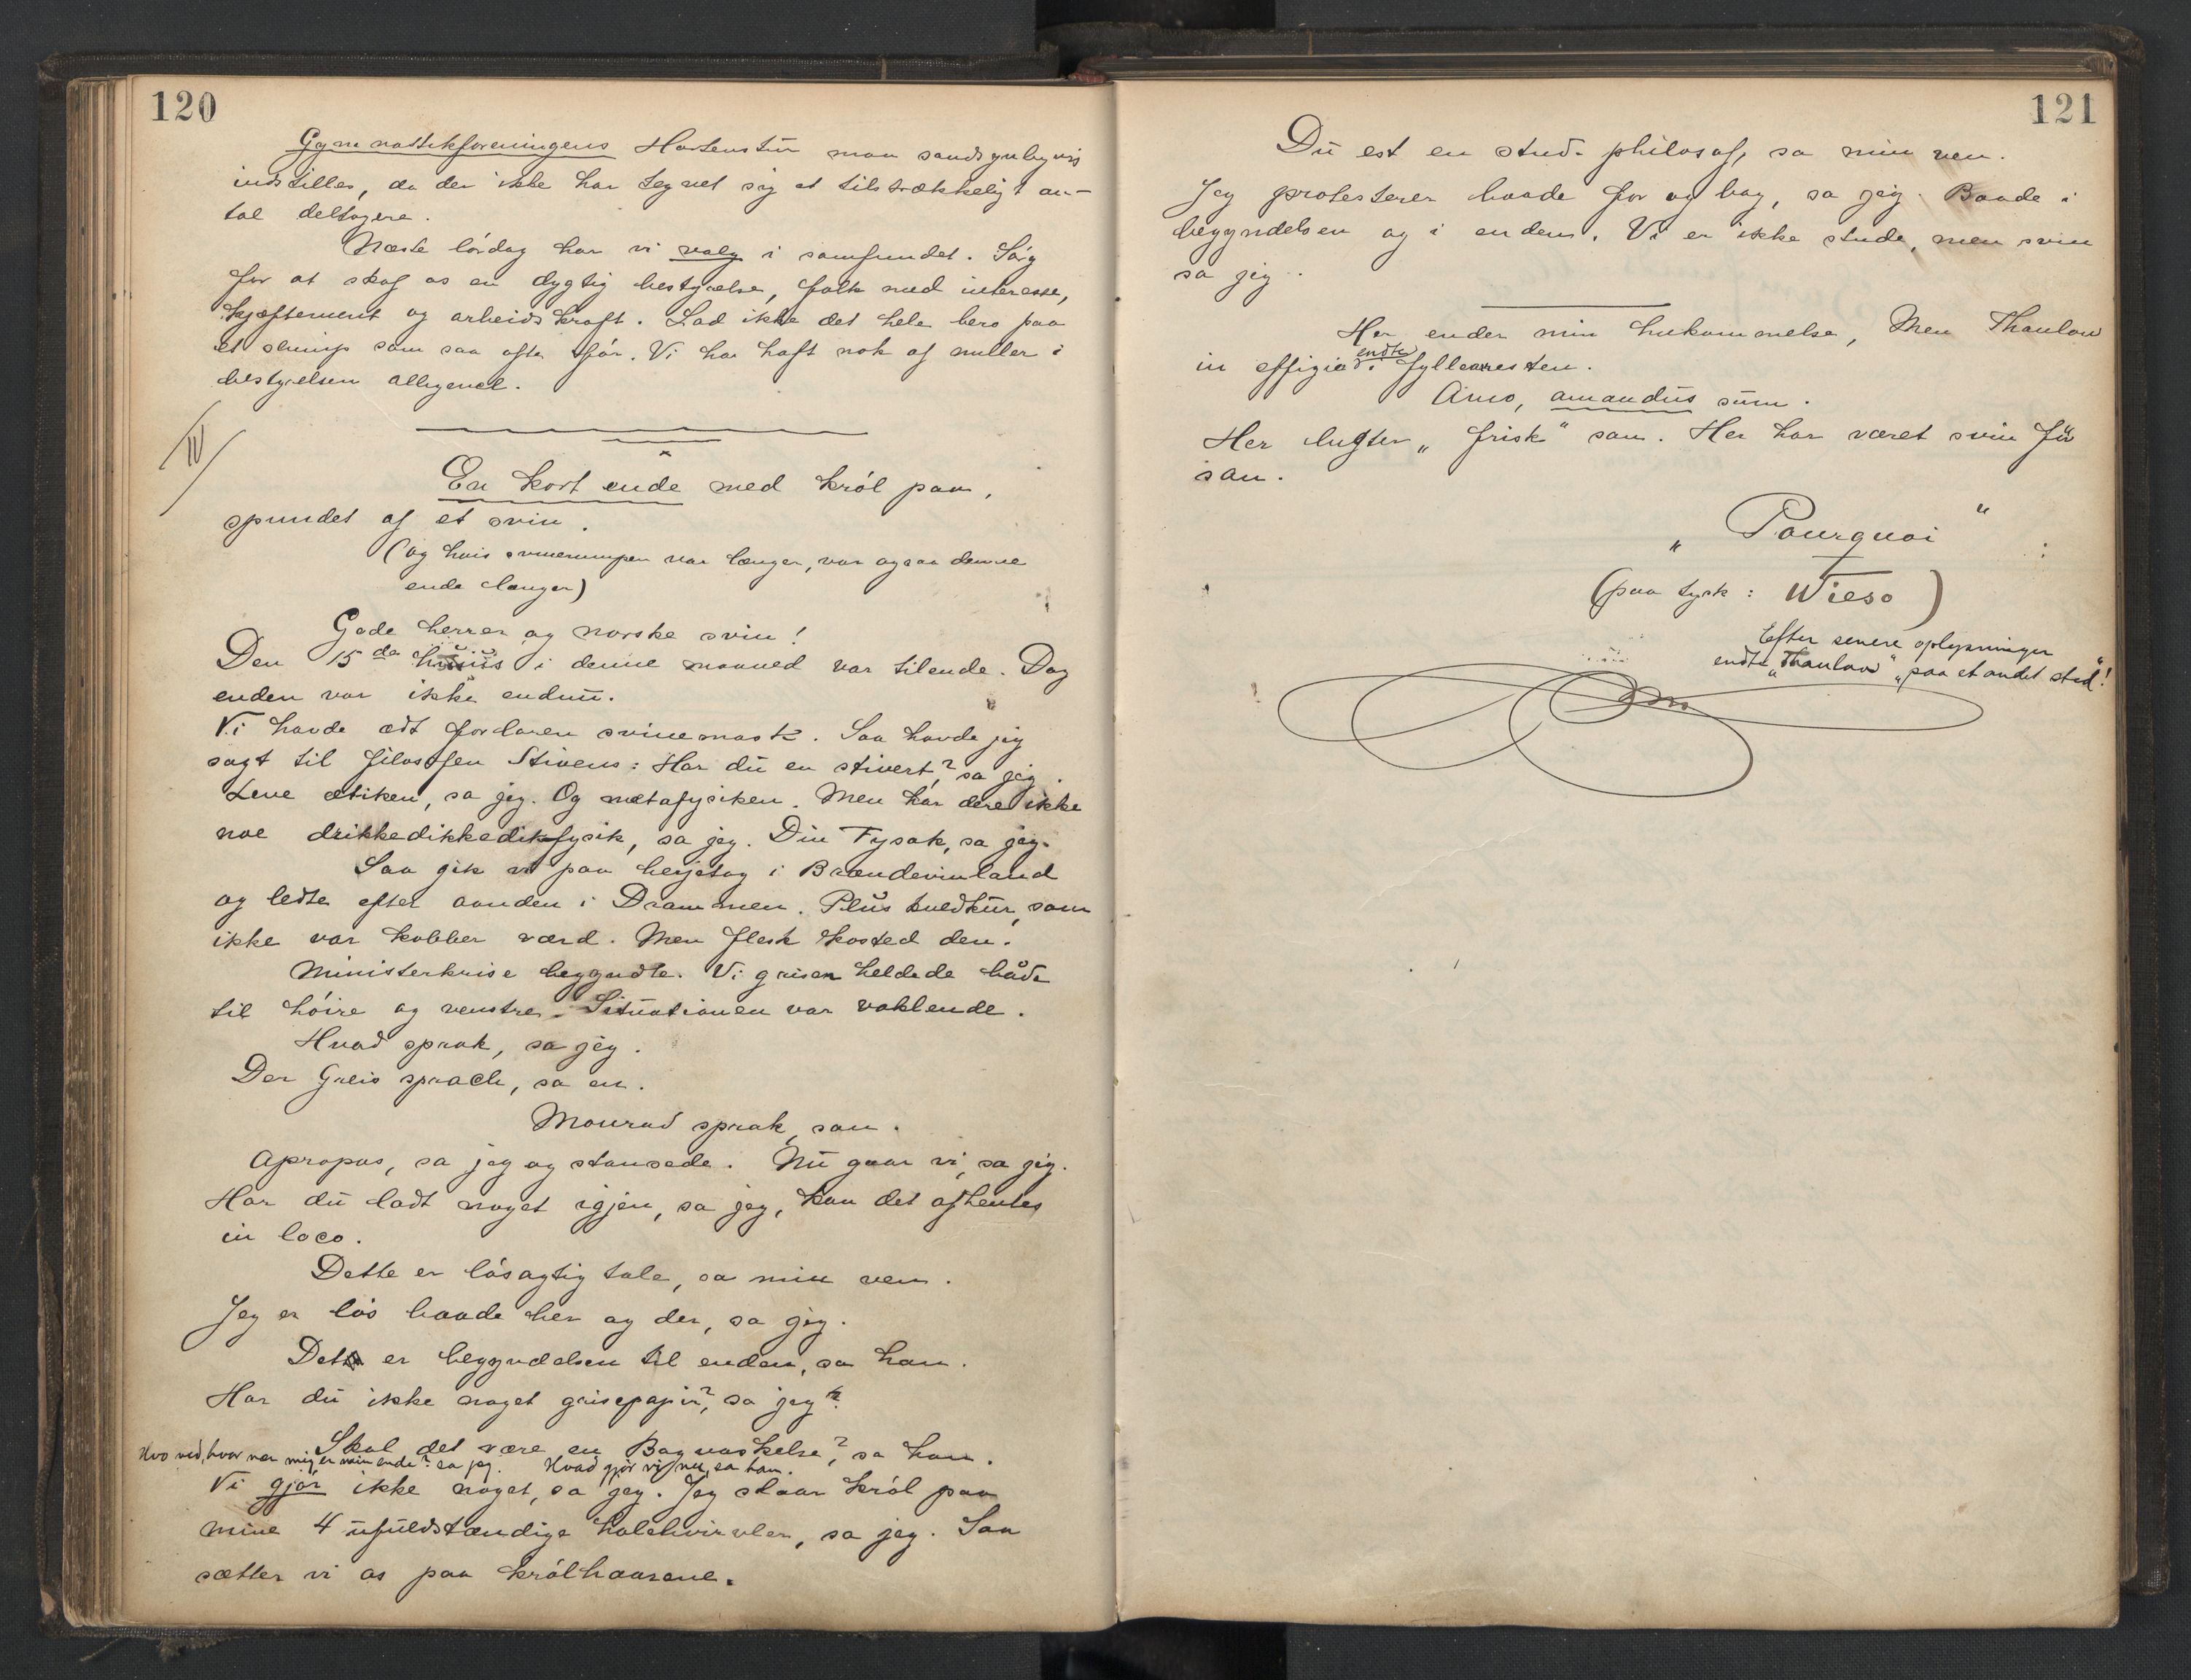 120
Gymnastikforeningens Hartenstur maa sandsynligvis
indstilles, da der ikke har tegnet sig et tilstrækkeligt an-
tal deltagere.
Næste lórdag har vi valg i samfundet. Sórg
for at skaf os en dygtig bestyrelse, folk med interesse,
kjæftement og arbeidskraft. Lad ikke det hele bero paa
et slump som saa ofte fór. Vi har haft nok af nuller i
bestyrelsen alligevel.
IV
En kort ende med król paa,
spundet af et svin.
(og hvis svinerumpen var længer, var ogsaa denne
ende længer)
Gode herrer og norske svin!
Den 15de huius i denne maaned var tilende. Dog
enden var ikke endnu.
Vi havde ædt fordaren svinemask. Saa havde jeg
sagt til filosofen Stivens: Har du en stivert? sa jeg.
Leve ætiken, sa jeg. Og metafysiken. Men har dere ikke
noe drikkedikkedikfysik, sa jeg. Din Fysak, sa jeg.
Saa gik vi paa herjetog i Brændevinland
og ledte efter aanden i Drammen. Plus kuldkur, som
ikke var kobber værd. Men flesk kosted den.
Ministerkrise begyndte. Vi grisen heldede både
til hóire og venstre. Situationen var vaklende.
Hvad sprak, sa jeg.
Der Greis sprach, sa en.
Monrad sprak, san.
Apropos, sa jeg og stansede. Nu gaar vi, sa jeg.
Har du ladt noget igjen, sa jeg, kan det afhentes
in loco.
Dette er lósagtig tale, sa min ven.
Jeg er lós baade her og der, sa jeg.
Det er begyndelsen til enden, sa han.
Har du ikke noget grisepapir? sa jeg.
Skal det være en Bagvaskelse? sa han.
Hvo ved, hvor nær mig er min ende? sa jeg. Hvad gjór vi nu, sa han.
Vi gjór ikke noget, sa jeg. Jeg slaar król paa
mine 4 ufuldstændige halehvirvler, sa jeg. Saa
sætter vi os paa królhaarene.
121
Du est en stud. philosof, sa min ven.
Jeg protesterer baade for og bag, sa jeg. Baade i
begyndelsen og i enden. Vi er ikke stude, men svin
sa jeg.
Her ender min hukommelse, Men Thaulow
in effigie endte i fyllearesten.
Amo, amandus sum.
Her lugter "frisk" san. Her har været svin fü
san.
"Pourquoi"
(paa tysk: Wieso)
Efter senere oplysninger
endte "Thaulow" "paa et andet sted"!